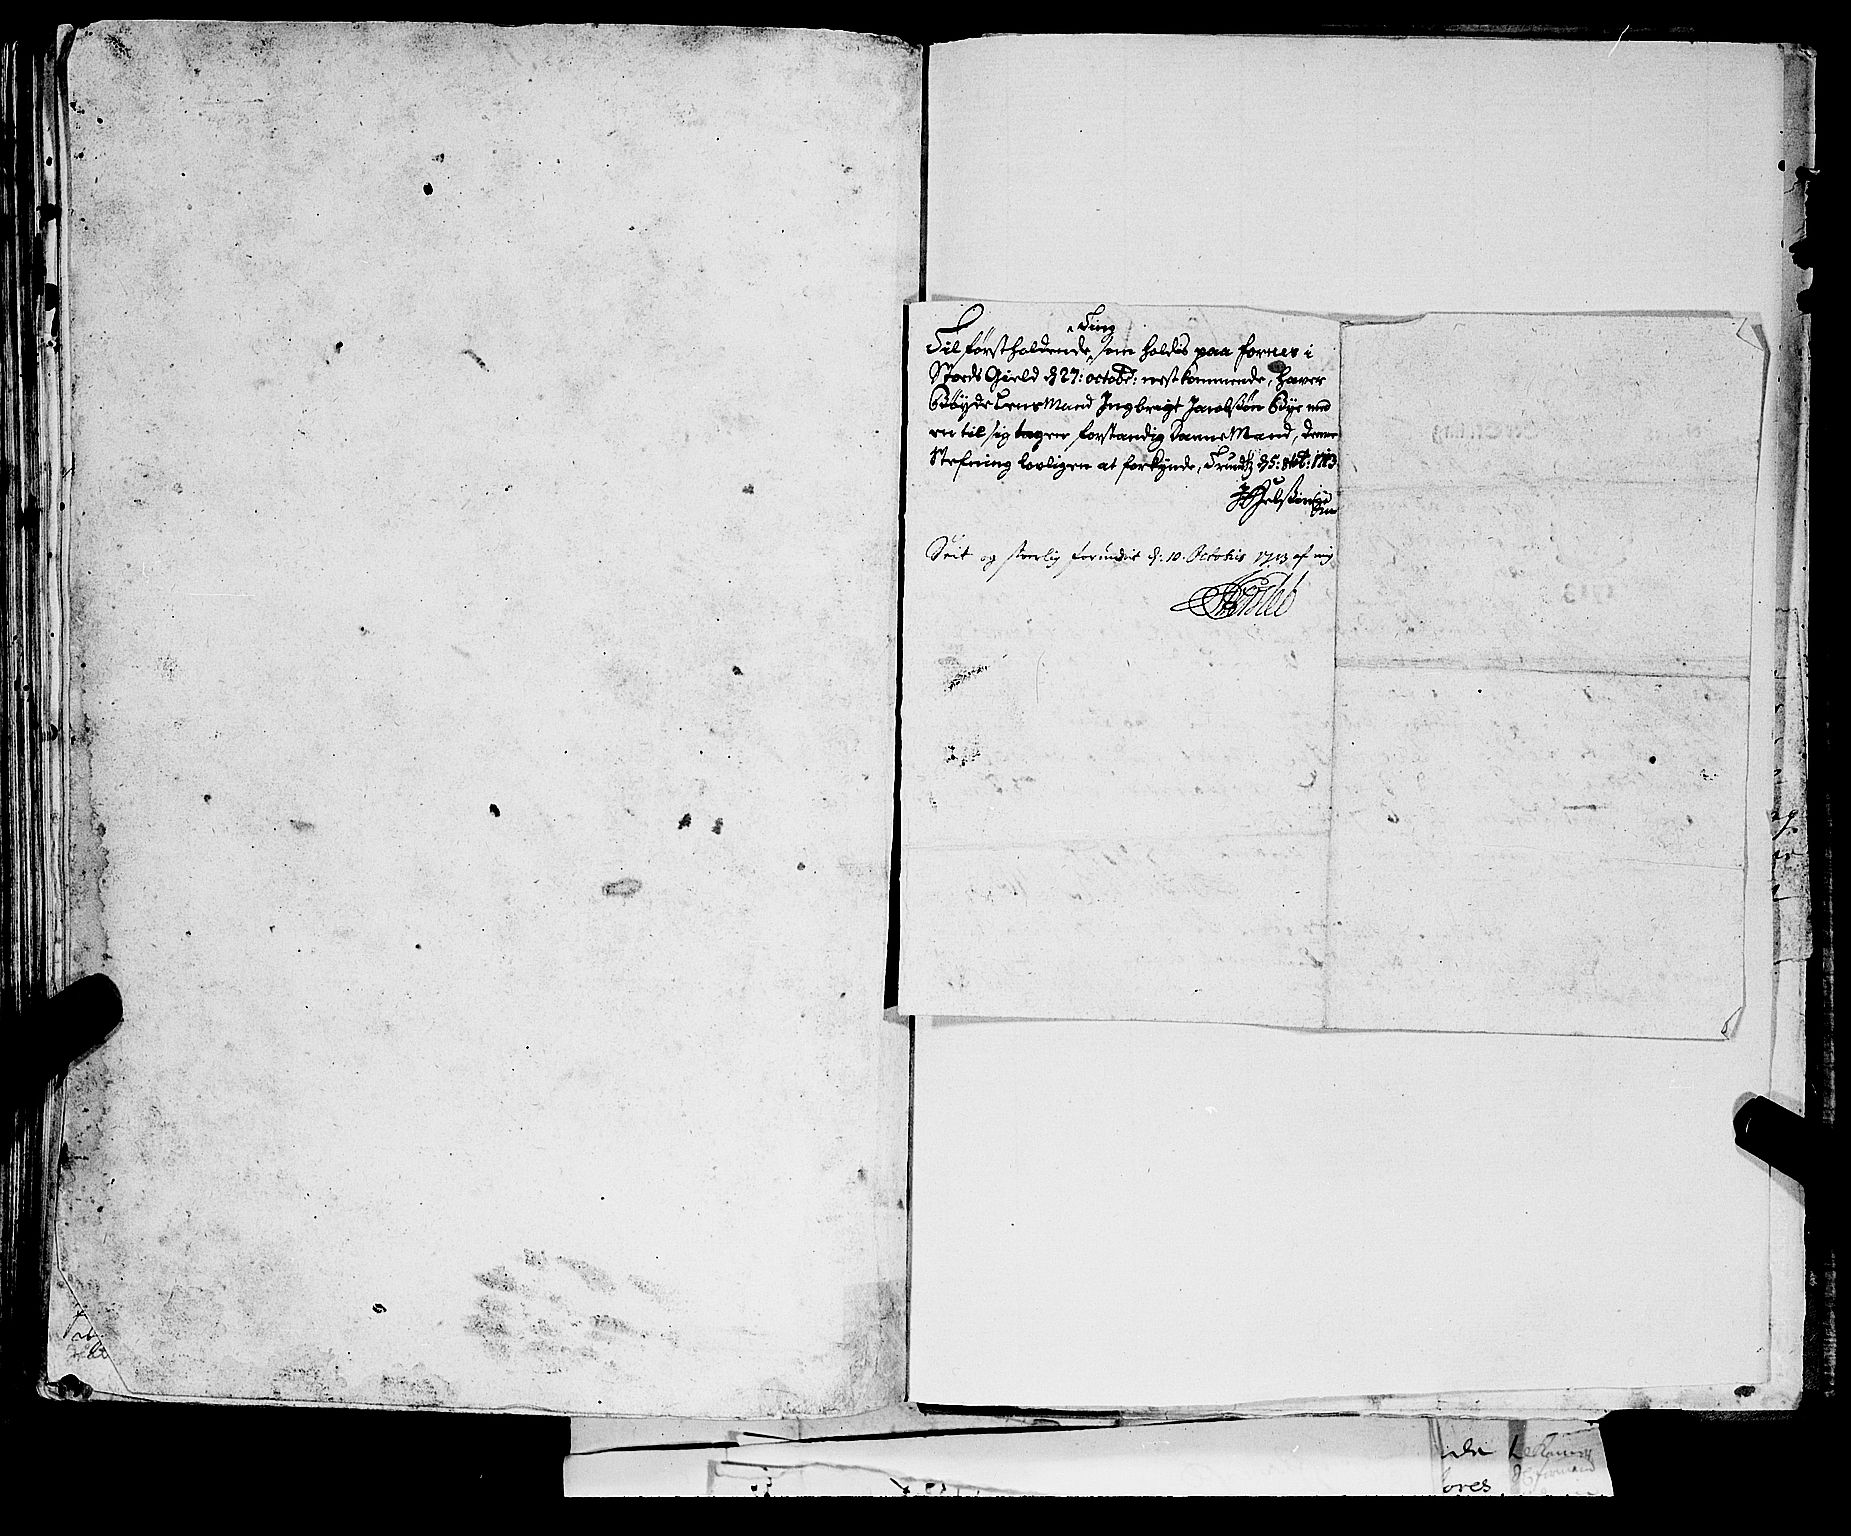 Ting
Til førstholdende, som holdes paa fornes i
Stods Gield d 27: octobr: nestkommende, haver
Bøyde Lens Mand Ingbrigt Jacobsøn Bye med
en til sig tagen forstandig Danne Mand, denne
Stefning lovligen at forkynde,
Seet og forkyndet d: 10. Octobris 1713 af mig
ores